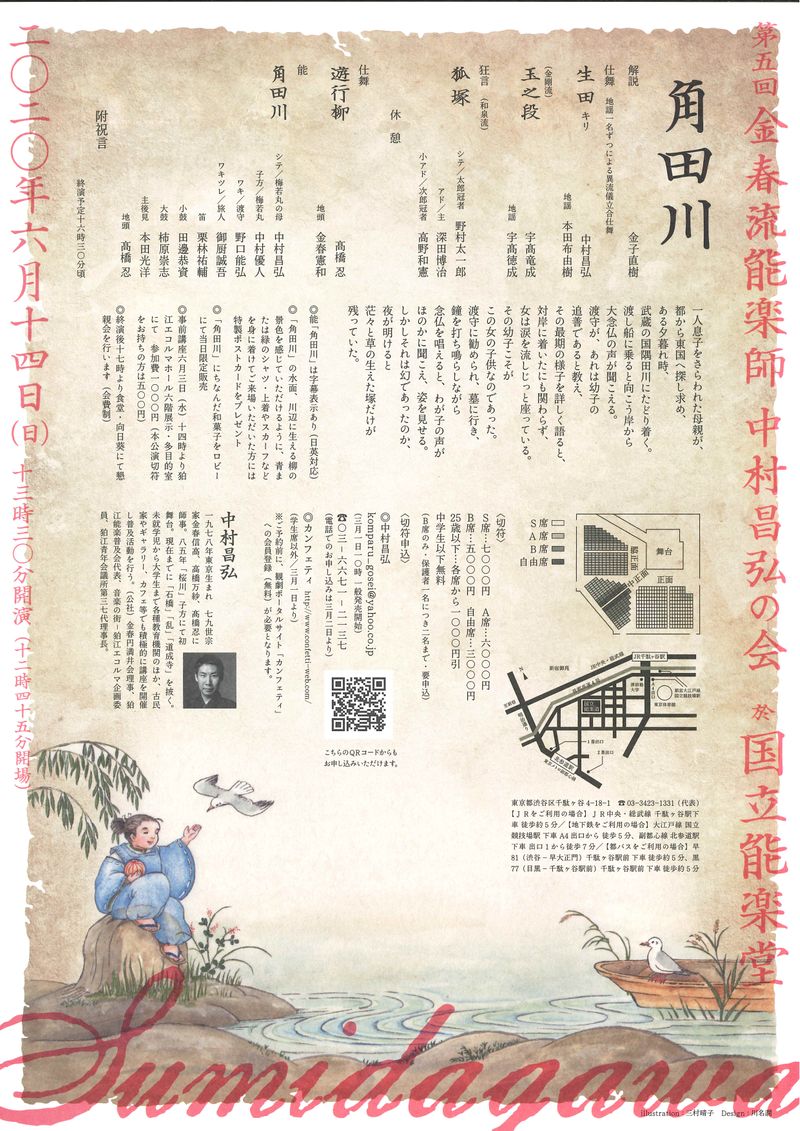 第五回 金春流能楽師 中村昌弘の会 於 国立能楽堂
角田川
解説 金子直樹
仕舞 地謡一名ずつによる異流儀立合仕舞
生田 キリ 中村昌弘
地謡 本田布由樹
(金剛流)
玉之段 宇髙竜成
地謡 宇髙徳成
狂言 (和泉流)
狐塚 シテ/太郎冠者 野村太一郎
アド/主 深田博治
小アド/次郎冠者 高野和憲
休憩
仕舞
遊行柳 髙橋 忍
地頭 金春憲和
能
角田川 シテ/梅若丸の母 中村昌弘
子方/梅若丸 中村優人
ワキ/渡守 野口能弘
ワキヅレ/旅人 御厨誠吾
笛 栗林祐輔
小鼓 田邊恭資
大鼓 柿原崇志
主後見 本田光洋
地頭 髙橋 忍
附祝言
終演予定十六時三〇分頃
一人息子をさらわれた母親が、
都から東国へ探し求め、
ある夕暮れ時、
武蔵の国隅田川にたどり着く。
渡し船に乗ると向こう岸から
大念仏の声が聞こえる。
渡守が、あれは幼子の
追善であると教え、
その最期の様子を詳しく語ると、
対岸に着いたにも関わらず、
女は涙を流しじっと座っている。
その幼子こそが
この女の子供なのであった。
渡守に勧められ、墓に行き、
鐘を打ち鳴らしながら
念仏を唱えると、わが子の声が
ほのかに聞こえ、姿を見せる。
しかしそれは幻であったのか、
夜が明けると
茫々と草の生えた塚だけが
残っていた。
◎能「角田川」は字幕表示あり(日英対応)
◎「角田川」の水面、川辺に生える柳の
景色を感じていただけるように、青ま
たは緑のシャツ・上着やスカーフなど
を身に着けてご来場いただいた方には
特製ポストカードをプレゼント
◎「角田川」にちなんだ和菓子をロビー
にて当日限定販売
◎事前講座六月三日(水)十四時より狛
江エコルマホール六階展示・多目的室
にて 参加費一〇〇〇円(本公演切符
をお持ちの方は五〇〇円)
◎終演後十七時より食堂・向日葵にて懇
親会を行います(会費制)
S席
A席
B席
自由席
舞台
脇正面
中正面
正面
〈切符〉
S席…七〇〇〇円 A席…六〇〇〇円
B席…五〇〇〇円 自由席…三〇〇〇円
25歳以下…各席から一〇〇〇円引
中学生以下無料
(B席のみ・保護者一名につき二名まで・要申込)
〈切符申込〉
◎中村昌弘
komparu_gosei@yahoo.co.jp
(三月一日一〇時一般発売開始)
☎〇三-六六七一-二一三七
(電話でのお申し込みは三月二日より)
◎カンフェティ http://www.confetti-web.com/
(学生席以外/三月一日より)
※ご予約前に、観劇ポータルサイト「カンフェティ」
への会員登録(無料)が必要となります。
こちらのQRコードからも
お申し込みいただけます。
中村昌弘
一九七八年東京生まれ 七九世宗
家金春信高、髙橋万紗、髙橋忍に
師事。八五年「桜川」子方にて初
舞台。現在までに「石橋」「乱」「道成寺」を披く。
未就学児から大学生まで各種教育機関のほか、古民
家やギャラリー、カフェ等でも積極的に講座を開催
し普及活動を行う。(公社)金春円満井会理事、狛
江能楽普及会代表、音楽の街-狛江エコルマ企画委
員、狛江青年会議所第三七代理事長。
JR千駄ヶ谷駅
JR中央・総武線
新宿御苑
津田塾大学
A4出口
都営大江戸線
国立競技場駅
東京体育館
国立能楽堂
1番出口
2番出口
北参道駅
東京メトロ副都心線
N
東京都渋谷区千駄ヶ谷 4-18-1 ☎03-3423-1331(代表)
【JRをご利用の場合】JR中央・総武線 千駄ヶ谷駅下
車 徒歩約5分/【地下鉄をご利用の場合】大江戸線 国立
競技場駅 下車 A4 出口から 徒歩5分、副都心線 北参道駅
下車 出口1から徒歩7分/【都バスをご利用の場合】早
81(渋谷-早大正門)千駄ヶ谷駅前 下車 徒歩約5分、黒
77(目黒-千駄ヶ谷駅前)千駄ヶ谷駅前 下車 徒歩約5分
二〇二〇年六月十四日(日) 十三時三〇分開演(十二時四十五分開場)
Sumidagawa
illustration:三村晴子 Design:川名潤